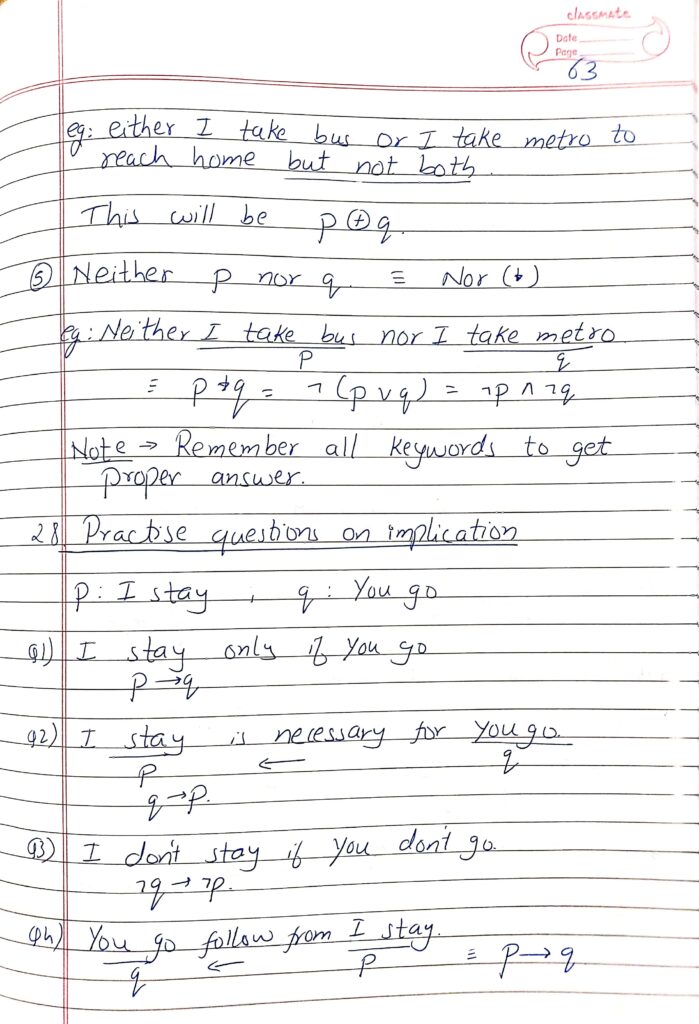 classmate
Date
Page
63
eg: either I take bus or I take metro to
reach home but not both.
This will be p ⊕ q.
⑤ Neither p nor q ≡ Nor (↓)
eg: Neither I take bus nor I take metro
p q
≡ p ↓ q = ¬(p ∨ q) = ¬p ∧ ¬q
Note → Remember all keywords to get
proper answer.
28 Practise questions on implication
p: I stay , q: You go
Q1) I stay only if You go
p → q
Q2) I stay is necessary for You go.
p ← q
q → p.
Q3) I don't stay if You don't go.
¬q → ¬p.
Q4) You go follow from I stay.
q ← p ≡ p → q